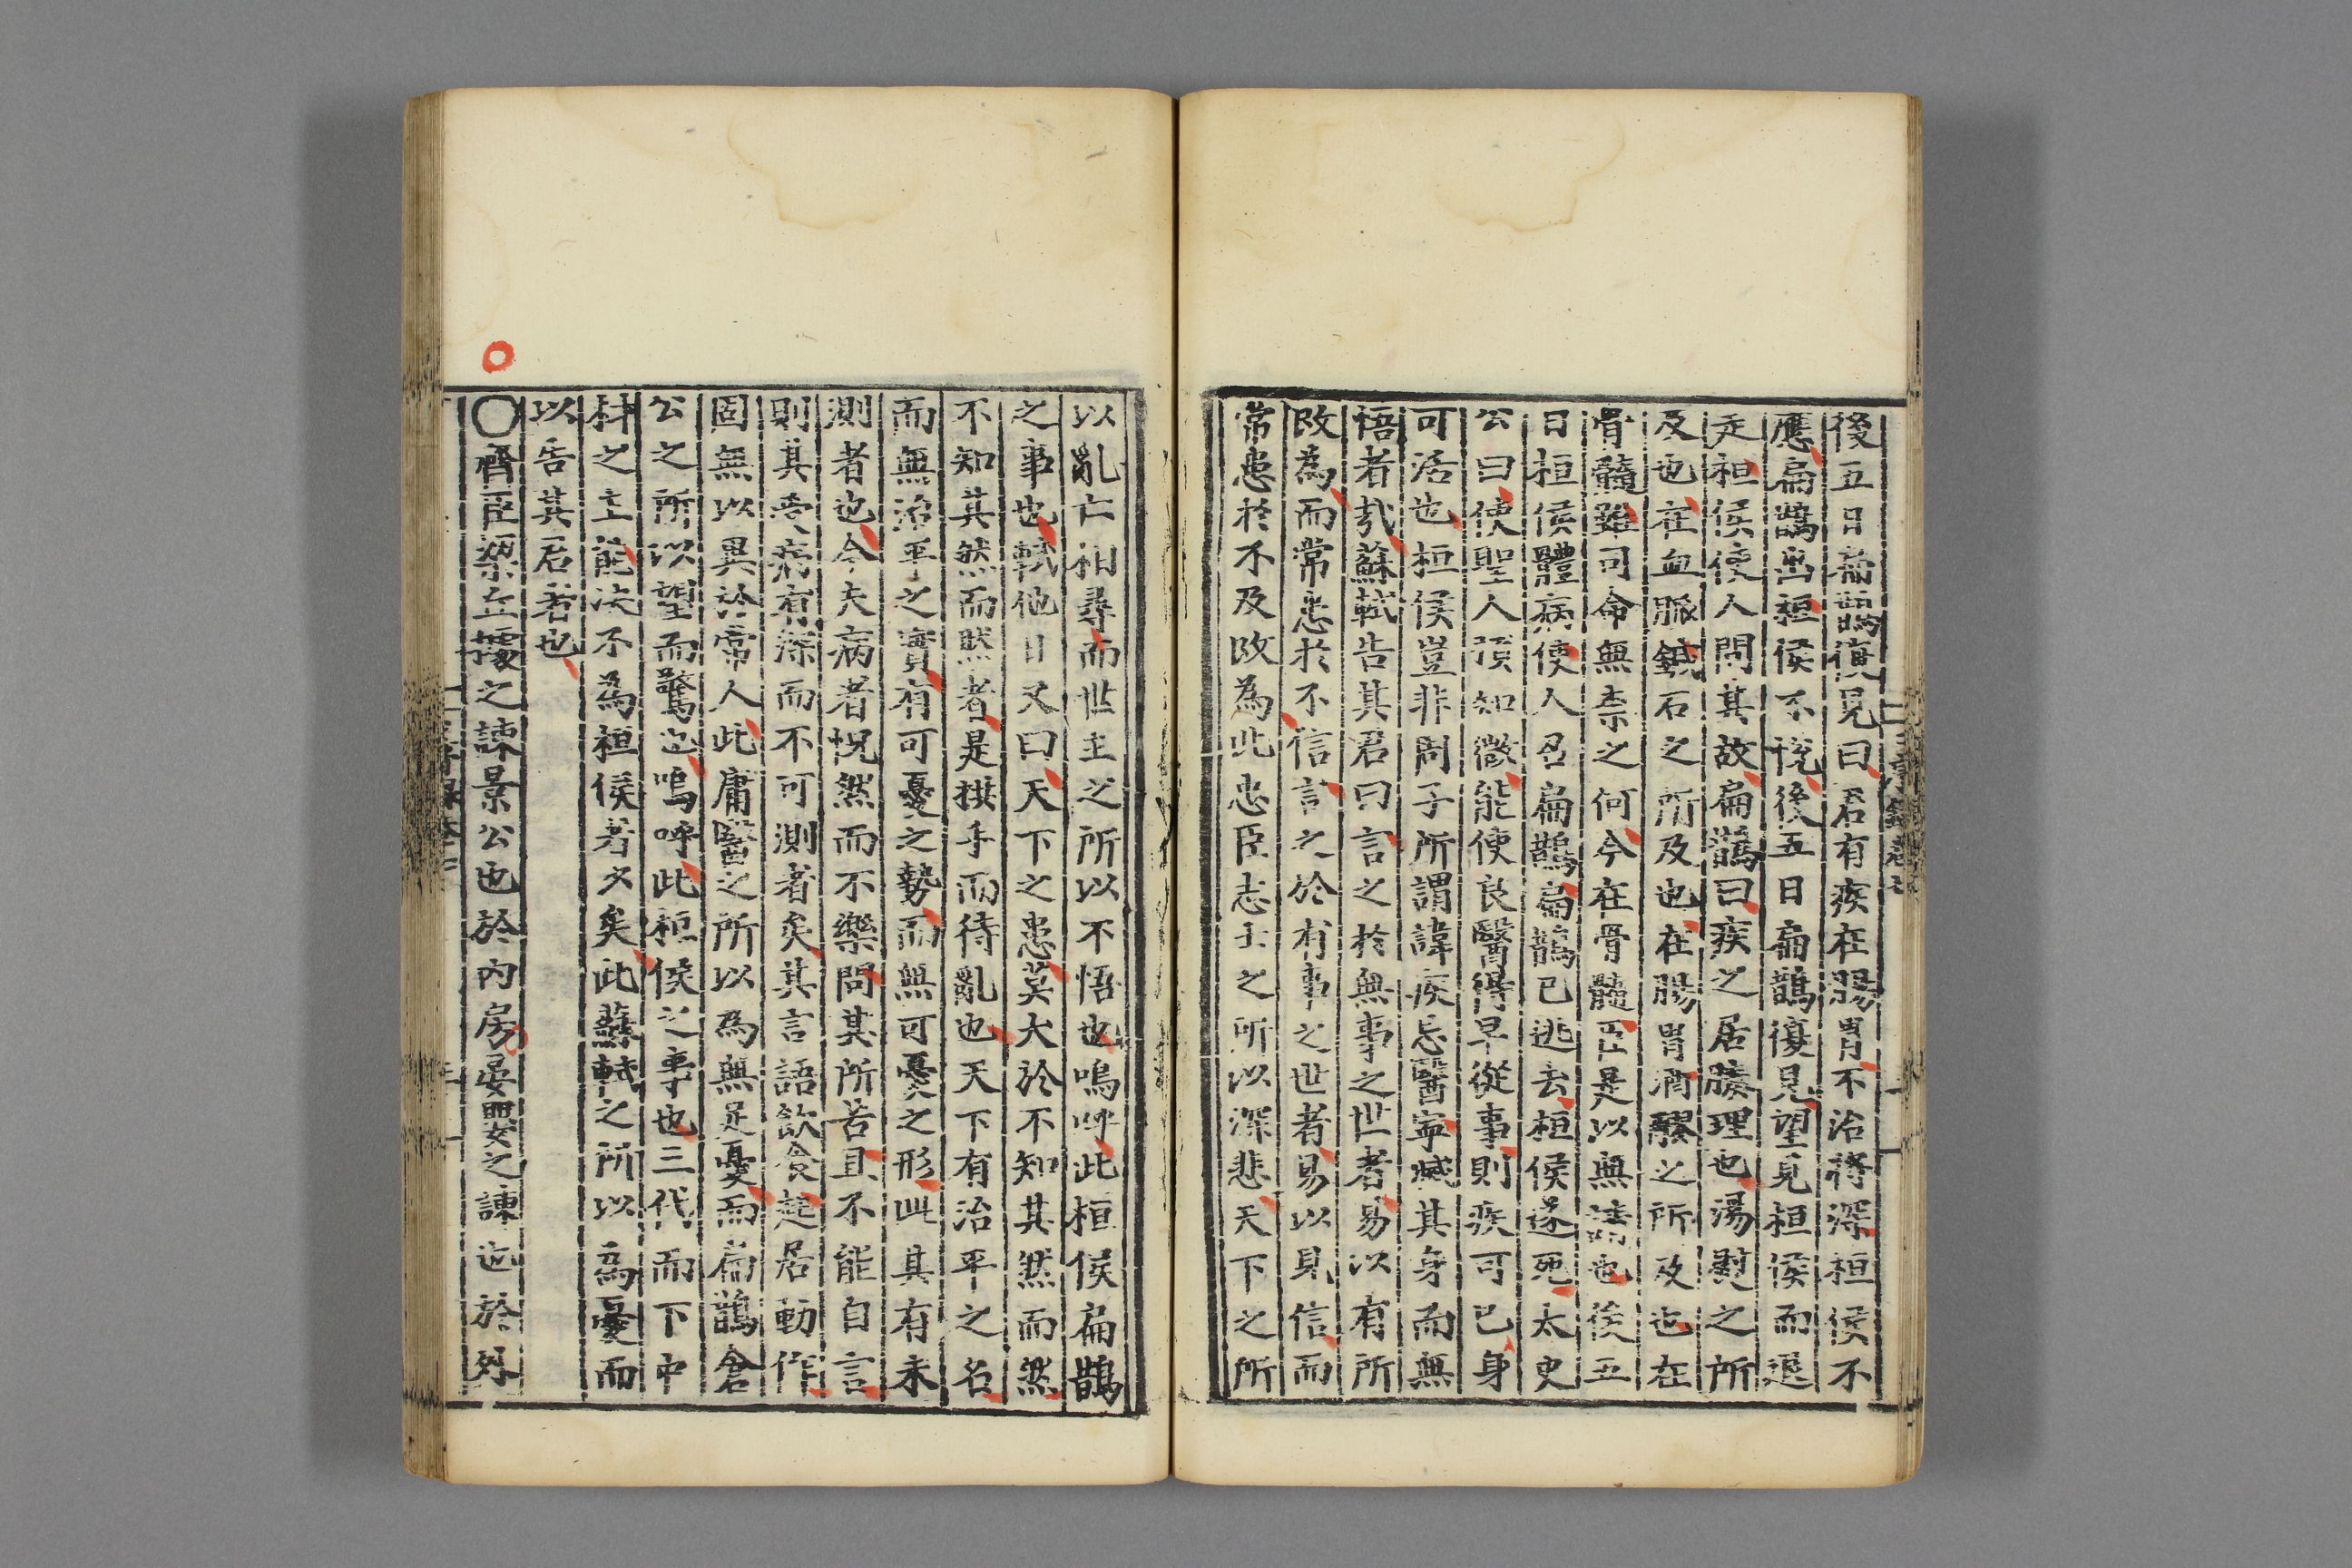 後五日扁鵲復見曰君有疾在腸胃不治將深桓侯不
應扁鵲出桓侯不悅後五日扁鵲復見望見桓侯而退
走桓侯使人問其故扁鵲曰疾之居腠理也湯熨之所
及也在血脈鍼石之所及也在腸胃酒醪之所及也在
骨髓雖司命無柰之何今在骨髓臣是以無請也後五
日桓侯體病使人召扁鵲扁鵲已逃去桓侯遂死太史
公曰使聖人預知微能使良醫得早從事則疾可已身
可活也桓侯豈非周子所謂諱疾忌醫寧滅其身而無
悟者哉蘇軾告其君曰言之於無事之世者易以有所
改為而常患於不信言之於有事之世者易以見信而
常患於不及改為此忠臣志士之所以深悲天下之所
以亂亡相尋而世主之所以不悟也嗚呼此桓侯扁鵲
之事也軾他日又曰天下之患莫大於不知其然而然
不知其然而然者是拱手而待亂也天下有治平之名
而無治平之實有可憂之勢而無可憂之形此其有未
測者也今夫病者怳然而不樂問其所苦且不能自言
則其受病有深而不可測者矣其言語飲食起居動作
固無以異於常人此庸醫之所以為無足憂而扁鵲倉
公之所以望而驚也嗚呼此桓侯之事也三代而下中
材之主能決不為桓侯者少矣此蘇軾之所以為憂而
以告其君者也
○齊臣梁丘據之諫景公也於內房晏嬰之諫也於外